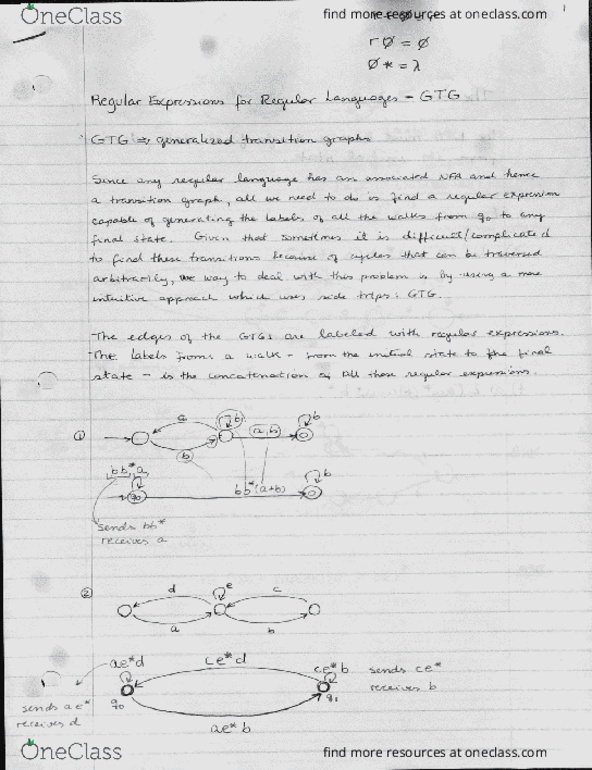 OneClass
find more resources at oneclass.com
1
r∅ = ∅
∅* = λ
Regular Expressions for Regular Languages - GTG
GTG => generalized transition graphs
Since any regular language has an associated NFA and hence
a transition graph, all we need to do is find a regular expression
capable of generating the labels of all the walks from q0 to any
final state. Given that sometimes it is difficult/complicated
to find these transitions because of cycles that can be traversed
arbitrarily, way to deal with this problem is by using a more
intuitive approach which uses side trips: GTG.
-The edges of the GTGs are labeled with regular expressions.
-The labels from a walk - from the initial state to the final
state - is the concatenation of all those regular expressions.
①
a
b
b
a,b
b
bb*a
q0
bb*(a+b)
b
sends bb*
receives a
②
d
e
c
a
b
ae*d
ce*d
ce*b
sends ce*
receives b
sends ae*
receives d
q0
q1
ae*b
OneClass
find more resources at oneclass.com